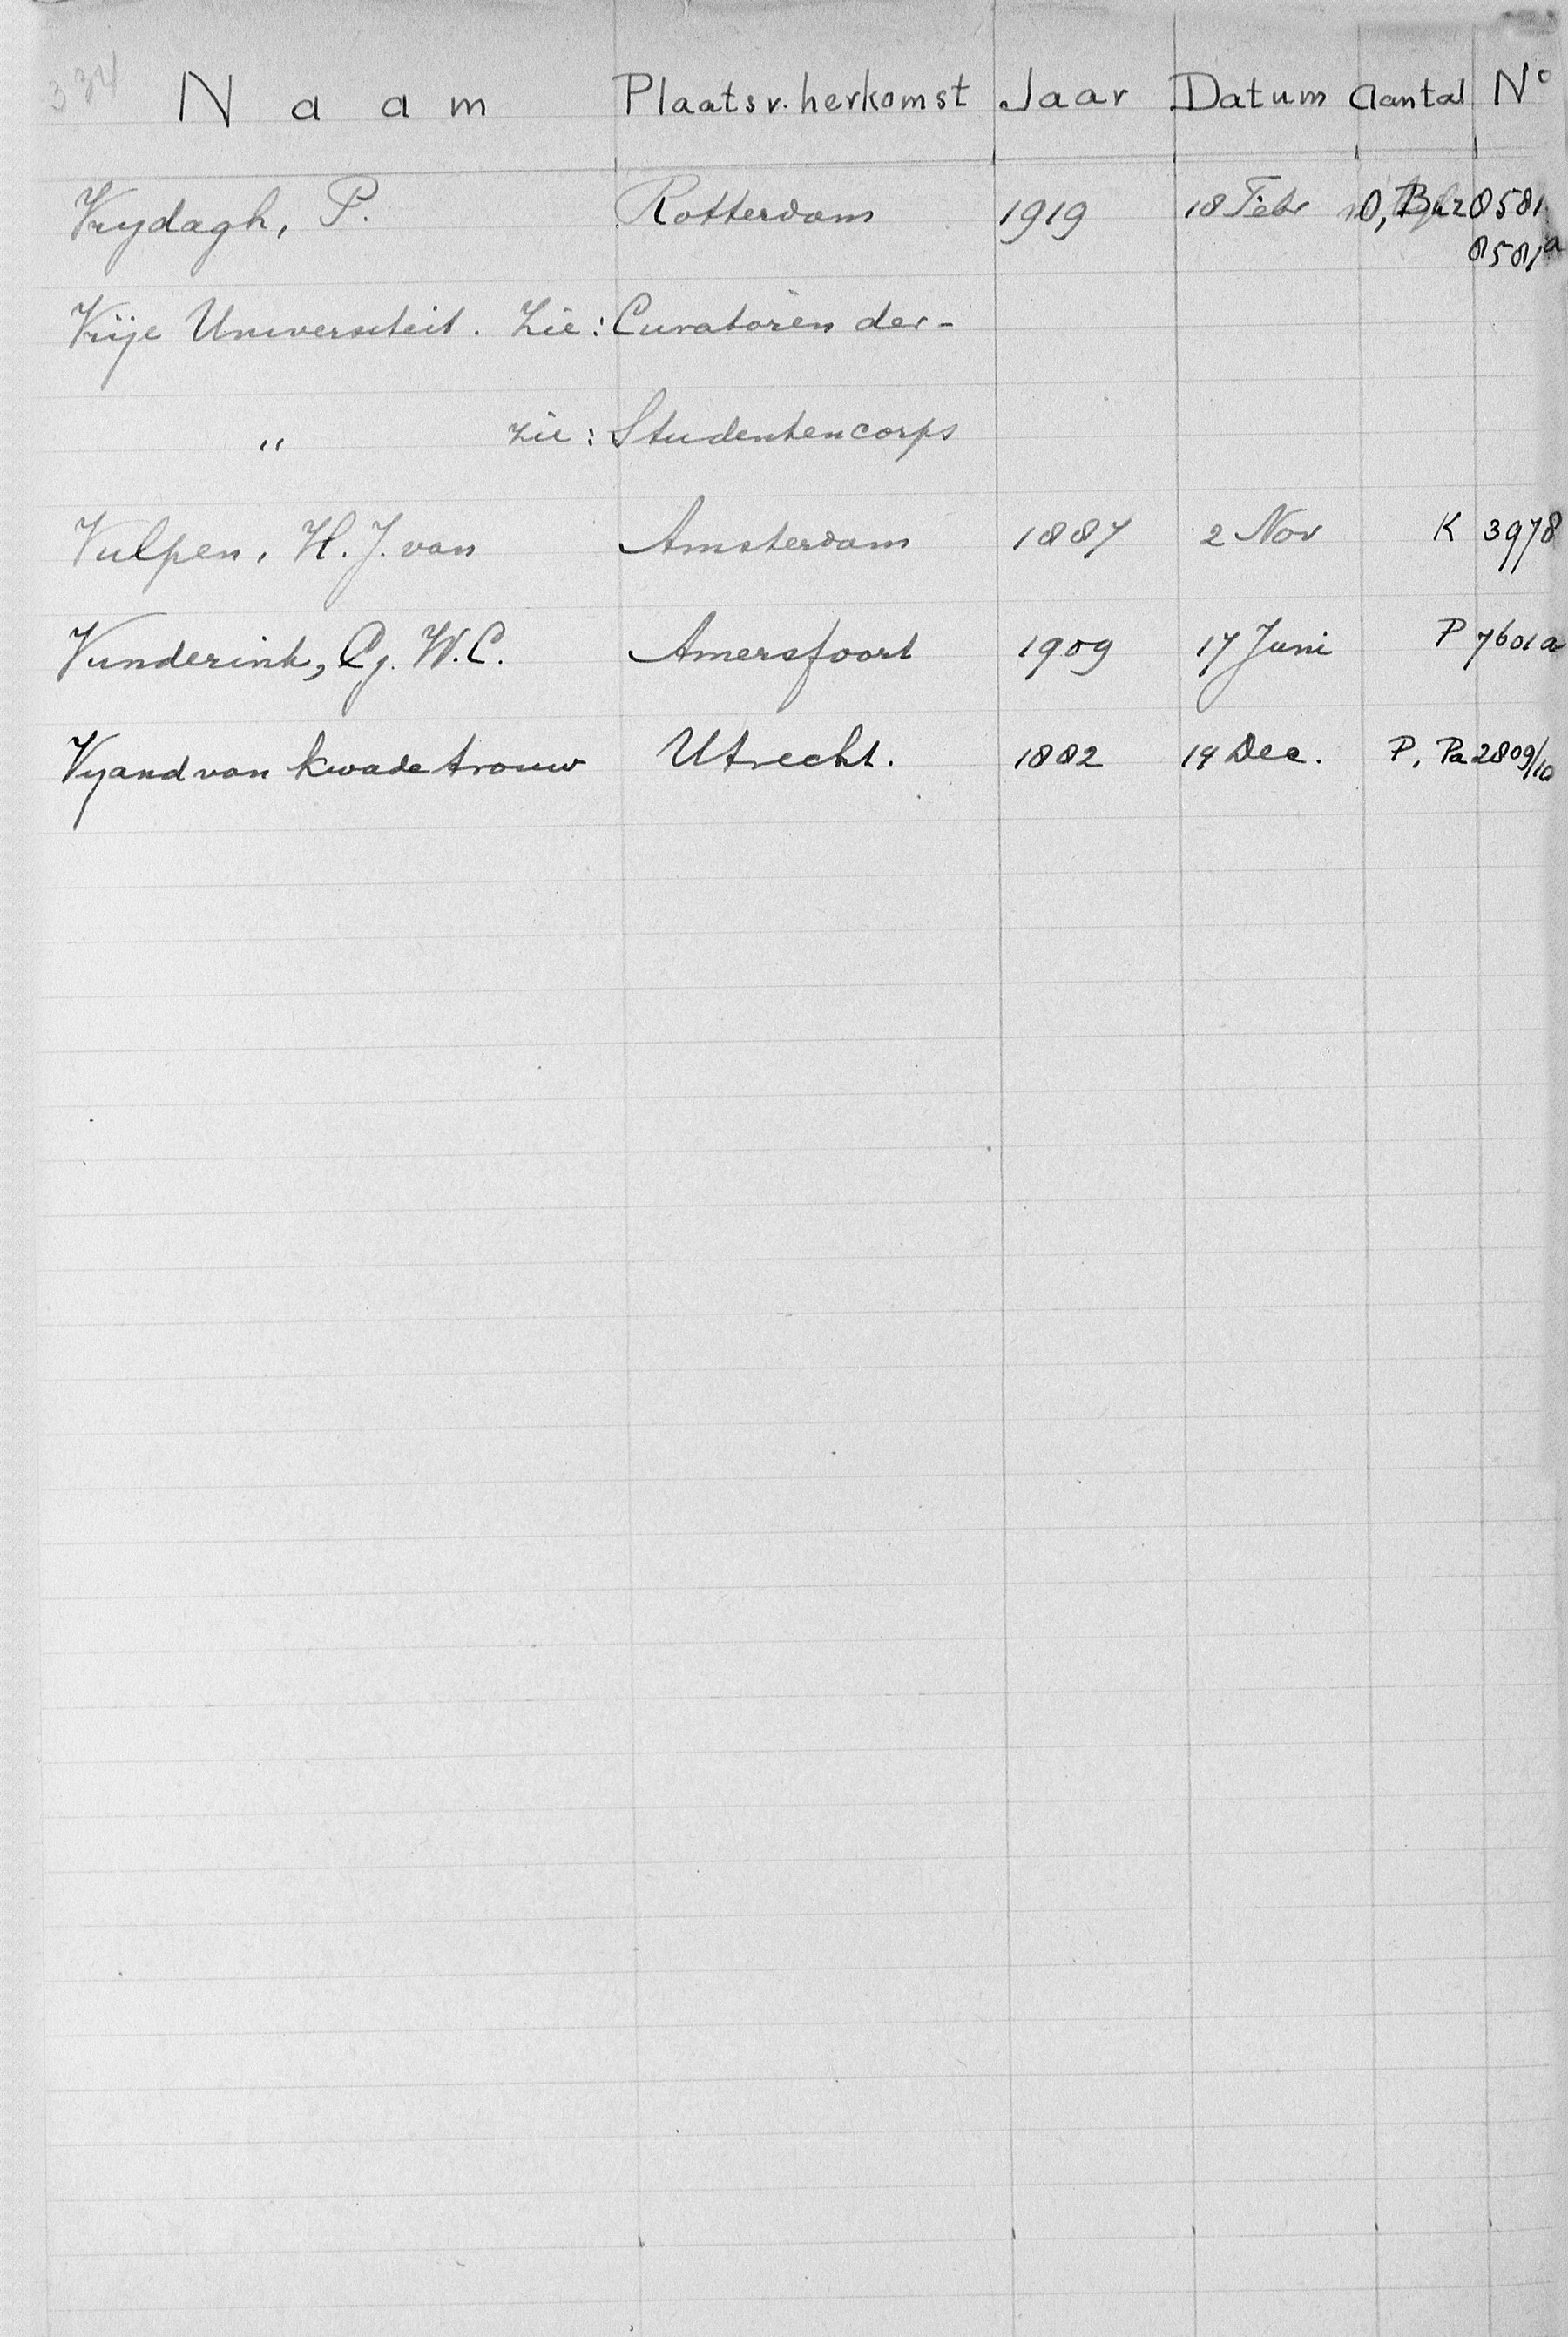 334
Naam Plaats v. herkomst Jaar Datum Aantal No
Vrydagh, P. Rotterdam 1919 18 Febr 8581
8581a
Vrije Universiteit. Zie: Curatoren der-
" zie: Studentencorps
Vulpen, H. J. van Amsterdam 1887 2 Nov K 3978
Vunderink, Cj. W. C. Amersfoort 1909 17 Juni P 7601a
Vyand van kwade trouw Utrecht. 1882 14 Dec. P, Pa 2809/10